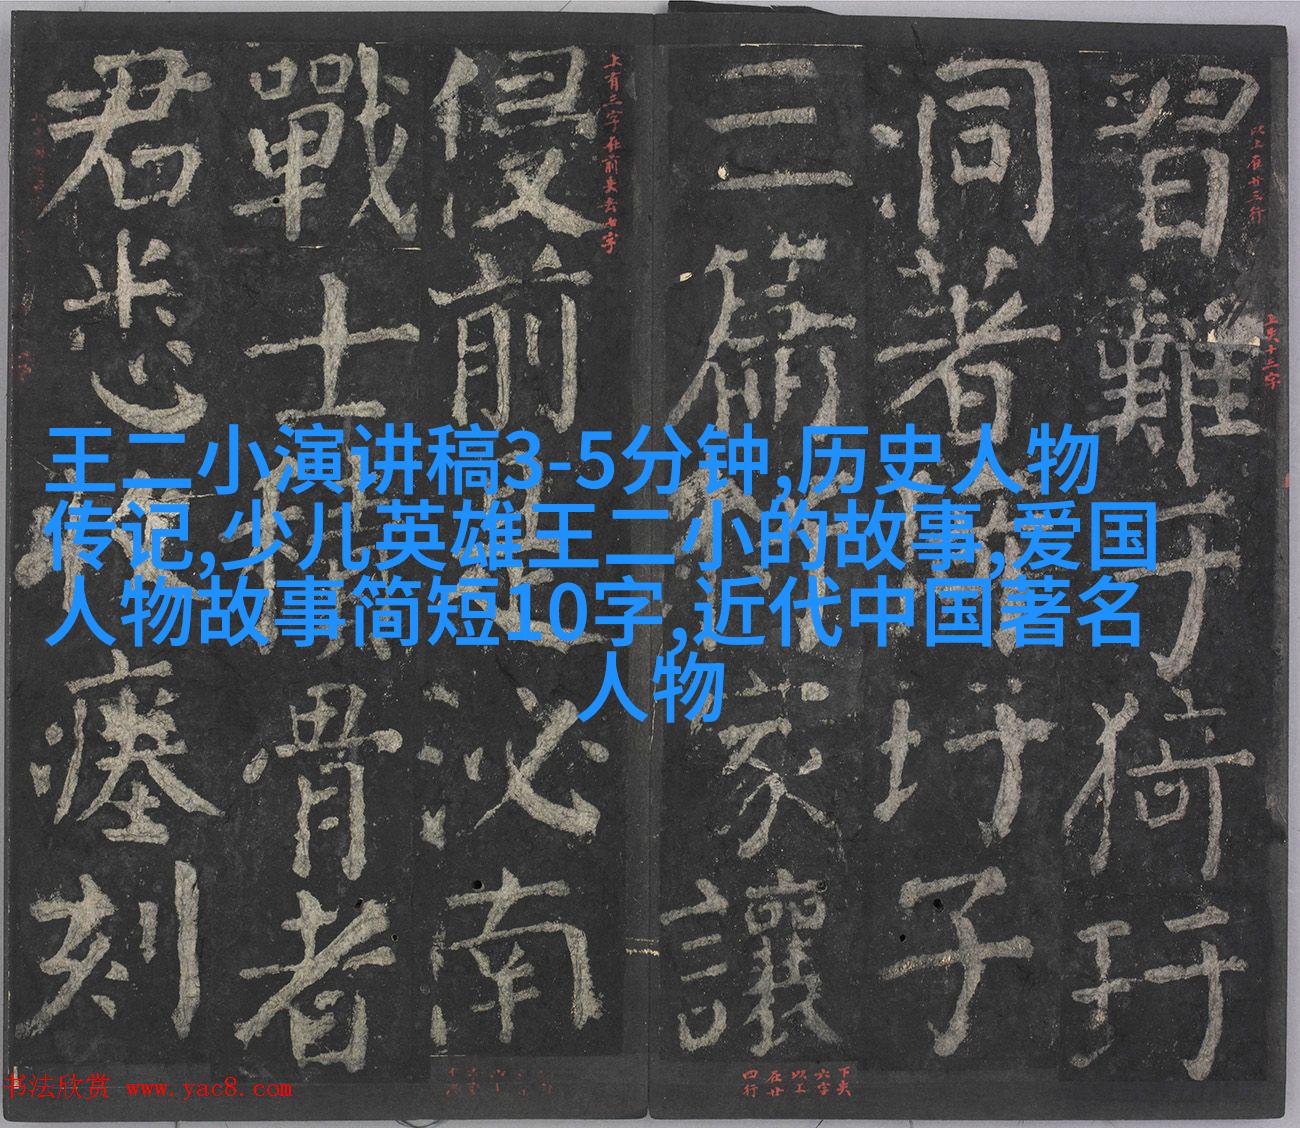 王二小演讲稿3-5分钟,历史人物
传记,少儿英雄王二小的故事,爱国
人物故事简短10字,近代中国著名
人物
習難于猗玗
洞著圩子
三篇家讓
侵前是泌南
戰士積骨者
君悲瘞刻
以上在廿三行
上失十三字
下失六字以上在廿四行
书法欣赏 www.yac8.com